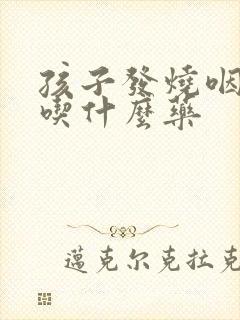 孩子發燒咽
喫什麼藥
邁克尔克拉克